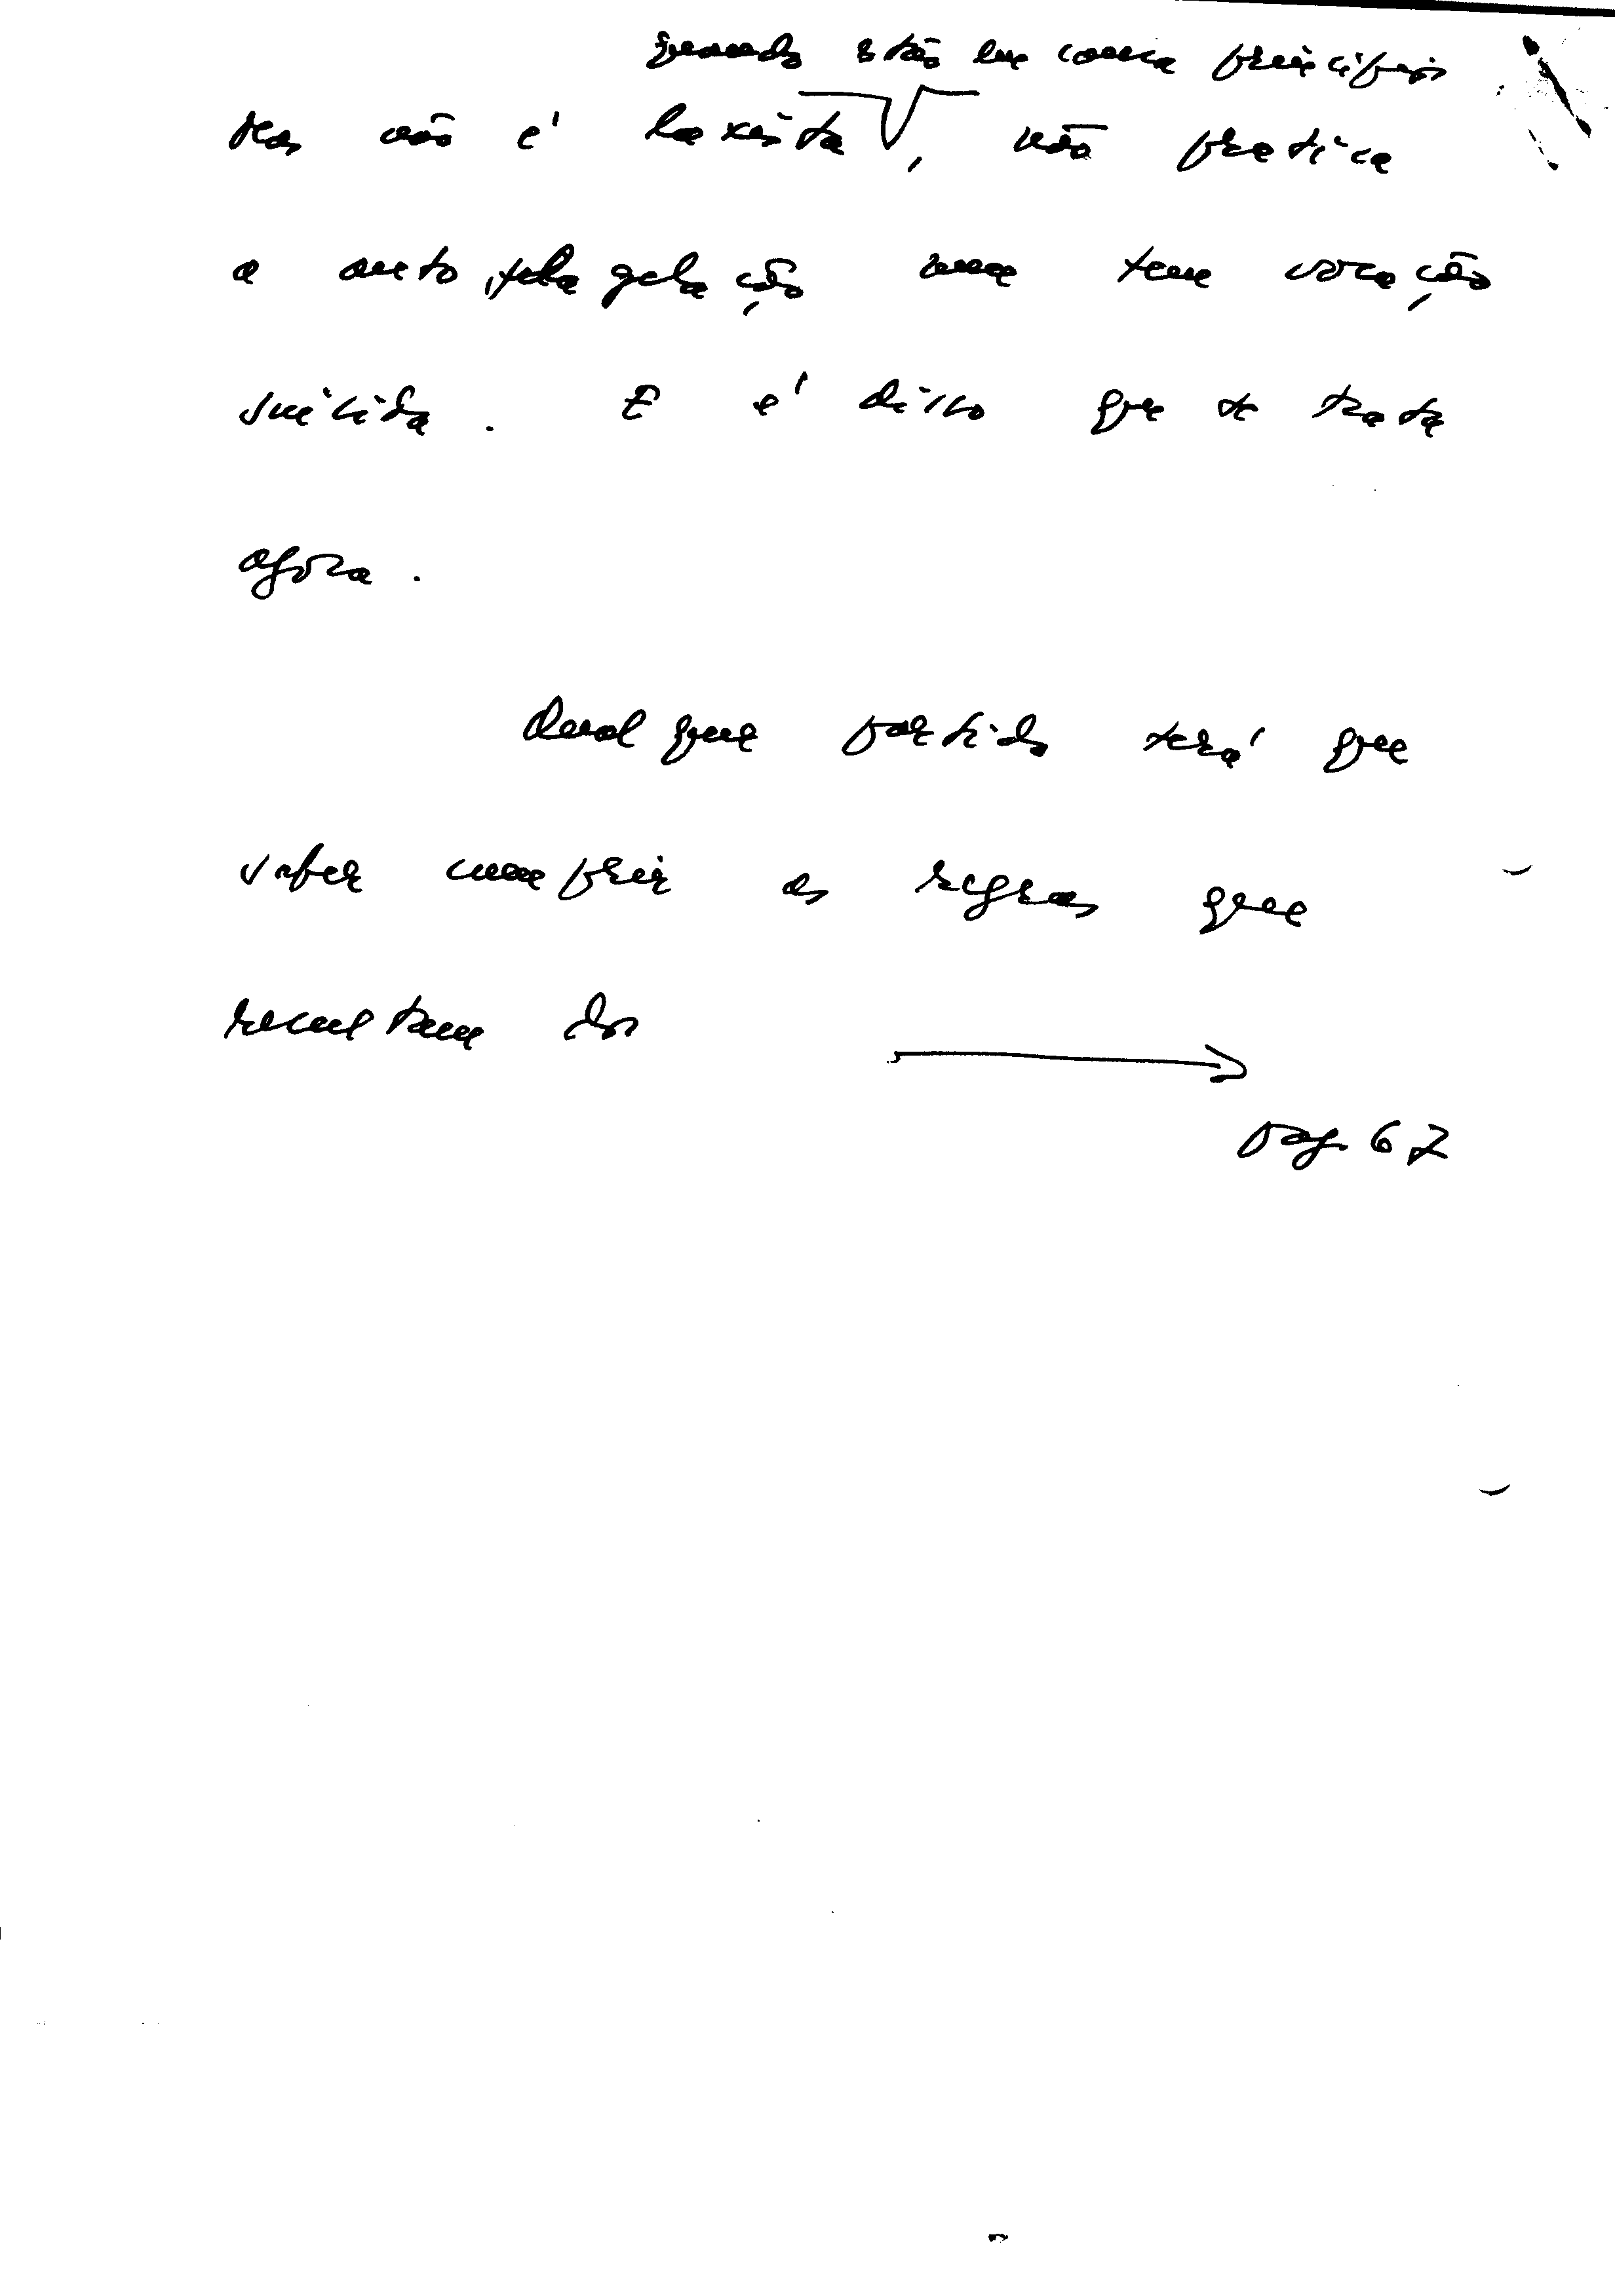 quando estão em causa princípios
Mas não é laxista, não pratica
a auto flagelação nem tem vocação
suicida. E é disso que se trata
agora.
Qualquer partido terá que
saber cumprir as regras que
resultam dos
pag. 67